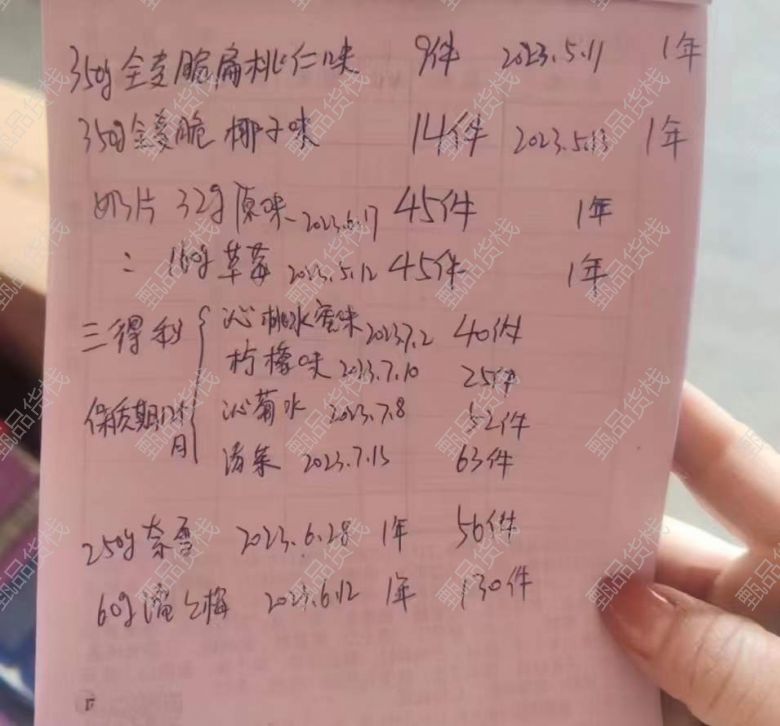 350g全麦脆扁桃仁味 9件 2023.5.11 1年
350g全麦脆 椰子味 14件 2023.5.13 1年
奶片 32g原味 2023.6.17 45件 1年
: 160g草莓 2023.5.12 45件 1年
三得利 沁桃水蜜味 2023.7.2 40件
柠檬味 2023.7.10 25件
保质期12个月 沁葡水 2023.7.8 52件
2023.7.15 63件
250g奈雪 2023.6.28 1年 56件
60g溜溜梅 2023.6.12 1年 130件
17
甄品货栈